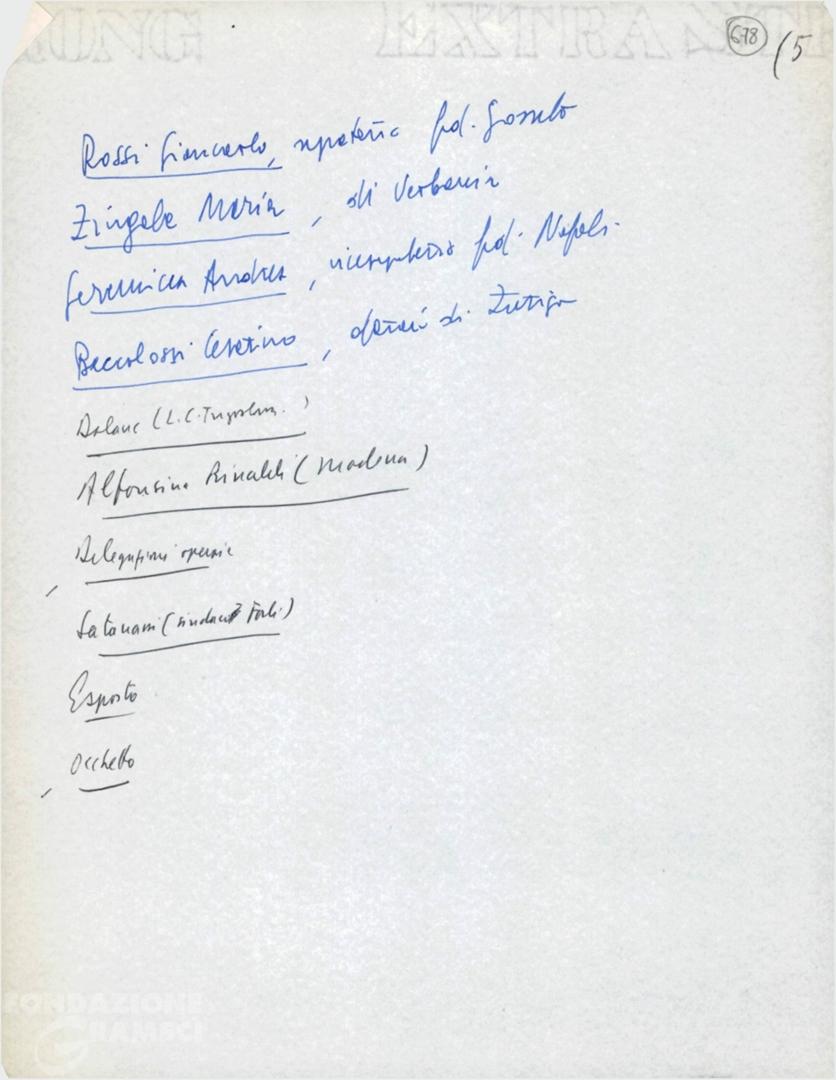 EXTRA
678
(5
Rossi Giancarlo, segreteria fed. Grosseto
Zingale Maria, di Verbania
Geremicca Andrea, vicesegretario fed. Napoli.
Baccolossi Cesarino, operaio di
(L.C. Jugoslav.)
Alfonsina Rinaldi (Modena)
Delegazioni operaie
Satanassi (sindaco Forlì)
Esposto
Occhetto
FONDAZIONE
GRAMSCI